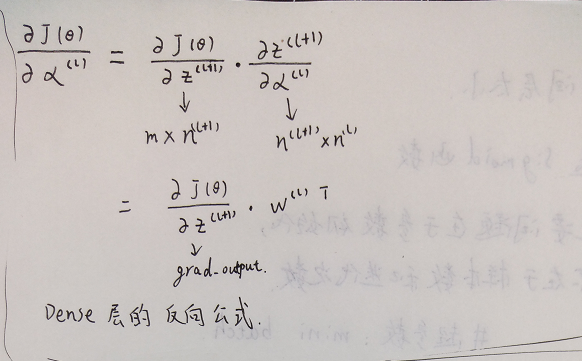 ∂J(θ)/∂α^(l) = ∂J(θ)/∂z^(l+1) · ∂z^(l+1)/∂α^(l)
↓ ↓
m × n^(l+1) n^(l+1) × n^(l)
= ∂J(θ)/∂z^(l+1) · w^(l) T
↓
grad-output.
Dense 层的 反向公式.